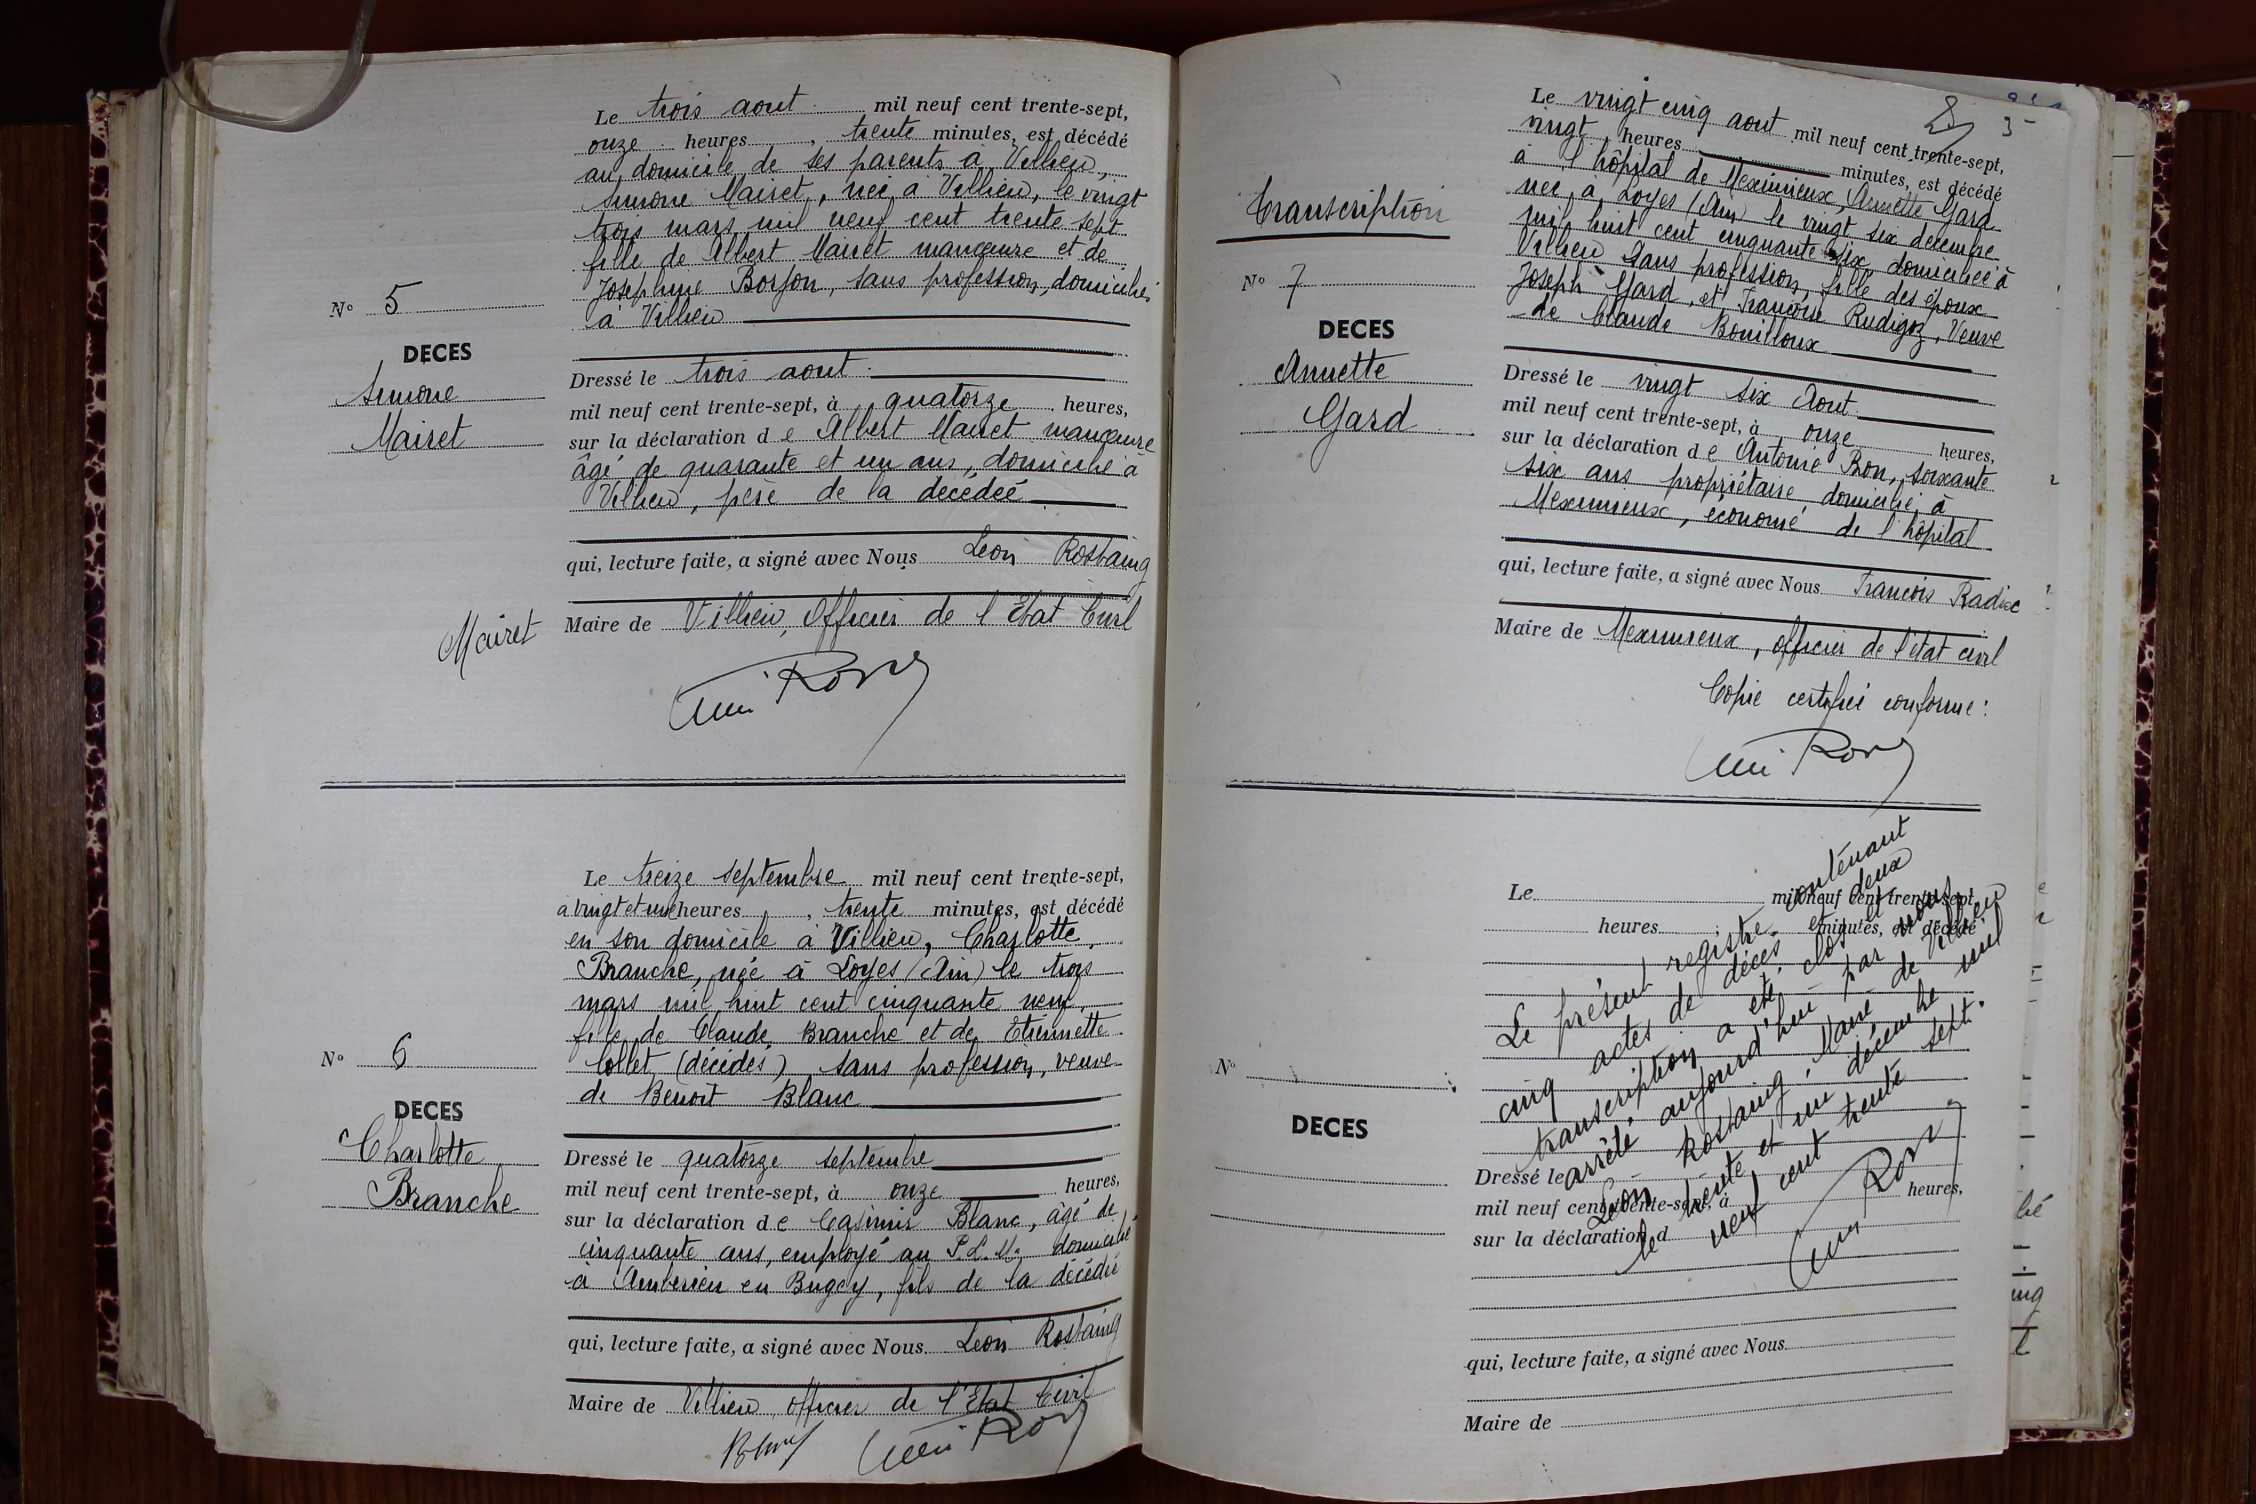 Le trois aout mil neuf cent trente-sept,
onze heures, trente minutes, est décédé
au domicile de ses parents à Villieu,
Simone Mairet, née à Villieu, le vingt
trois mars mil neuf cent trente sept
fille de Albert Mairet manœuvre et de
Josephine Borjon, sans profession, domiciliés
à Villieu
No 5
DECES
Simone
Mairet
Dressé le trois aout
mil neuf cent trente-sept, à quatorze heures,
sur la déclaration de Albert Mairet manœuvre
âgé de quarante et un ans, domicilié à
Villieu, père de la décédée
qui, lecture faite, a signé avec Nous Leon Rostaing
Maire de Villieu, Officier de l'Etat Civil
Mairet
Le treize septembre mil neuf cent trente-sept,
à vingt et une heures, trente minutes, est décédé
en son domicile à Villieu, Charlotte
Branche, née à Loyes (Ain) le trois
mars mil huit cent cinquante neuf,
fille de Claude Branche et de Etiennette
Collet (décédés) sans profession, veuve
de Benoit Blanc
No 6
DECES
Charlotte
Branche
Dressé le quatorze septembre
mil neuf cent trente-sept, à onze heures,
sur la déclaration de Casimir Blanc, âgé de
cinquante ans, employé au P.L.M. domicilié
à Ambérieu en Bugey, fils de la décédée
qui, lecture faite, a signé avec Nous Leon Rostaing
Maire de Villieu, officier de l'Etat Civil
Le vingt cinq aout mil neuf cent trente-sept,
vingt heures minutes, est décédé
à l'hôpital de Meximieux, Annette Gard
née à Loyes (Ain) le vingt six decembre
mil huit cent cinquante six domiciliée à
Villieu sans profession, fille des époux
Joseph Gard, et Francoise Rudigoz, Veuve
de Claude Bouilloux
Transcription
No 7
DECES
Annette
Gard
Dressé le vingt six Aout
mil neuf cent trente-sept, à onze heures,
sur la déclaration de Antoine Bon, soixante
six ans propriétaire domicilié à
Meximieux, économe de l'hôpital
qui, lecture faite, a signé avec Nous Francois Radix
Maire de Meximieux, officier de l'état civil
Copie certifiée conforme:
Le mil neuf cent trente-sept,
heures minutes, est décédé
No
DECES
Le présent registre contenant
cinq actes de décès et deux
transcription a été clos et
arrêté aujourd'hui par nous
Léon Rostaing, Maire de Villieu
le trente et un décembre mil
neuf cent trente sept.
Dressé le
mil neuf cent trente-sept, à heures,
sur la déclaration d
qui, lecture faite, a signé avec Nous
Maire de